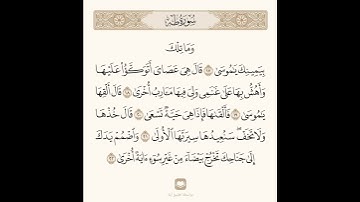 سُورَةُ طه
وَمَا تِلْكَ
بِيَمِينِكَ يَٰمُوسَىٰ ١٧ قَالَ هِيَ عَصَايَ أَتَوَكَّؤُاْ عَلَيْهَا
وَأَهُشُّ بِهَا عَلَىٰ غَنَمِي وَلِيَ فِيهَا مَـَٔارِبُ أُخْرَىٰ ١٨ قَالَ أَلْقِهَا
يَٰمُوسَىٰ ١٩ فَأَلْقَىٰهَا فَإِذَا هِيَ حَيَّةٞ تَسْعَىٰ ٢٠ قَالَ خُذْهَا
وَلَا تَخَفْۖ سَنُعِيدُهَا سِيرَتَهَا ٱلْأُولَىٰ ٢١ وَٱضْمُمْ يَدَكَ
إِلَىٰ جَنَاحِكَ تَخْرُجْ بَيْضَآءَ مِنْ غَيْرِ سُوٓءٍ ءَايَةً أُخْرَىٰ ٢٢